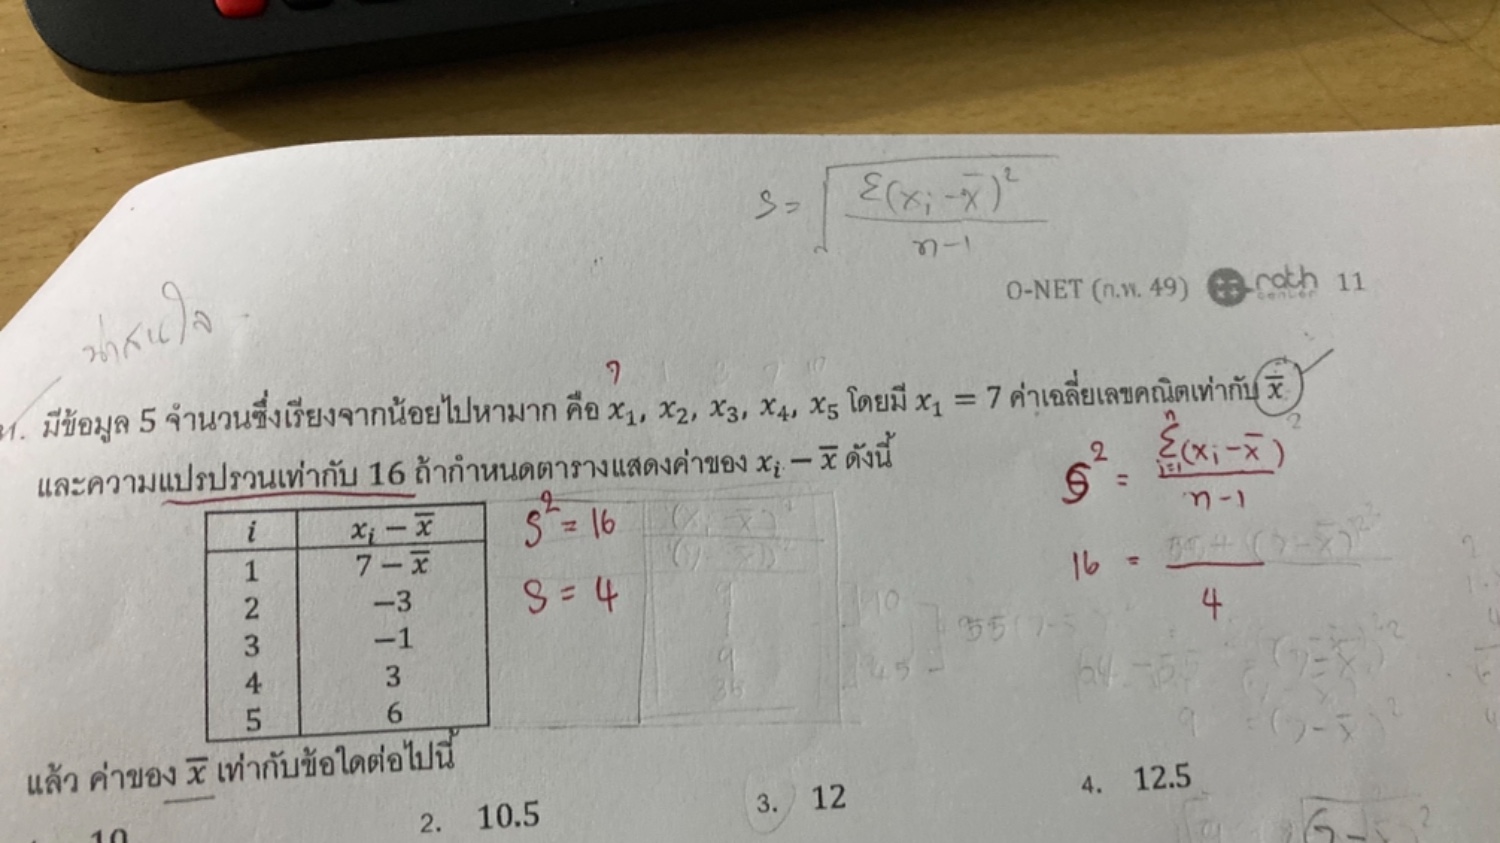 S = √ Σ(xᵢ - x̄)² / n-1
O-NET (ก.พ. 49) math center 11
น่าสนใจ
7
มีข้อมูล 5 จำนวนซึ่งเรียงจากน้อยไปหามาก คือ x₁, x₂, x₃, x₄, x₅ โดยมี x₁ = 7 ค่าเฉลี่ยเลขคณิตเท่ากับ x̄
และความแปรปรวนเท่ากับ 16 ถ้ากำหนดตารางแสดงค่าของ xᵢ − x̄ ดังนี้
S² = Σ(xᵢ - x̄)² / n-1
i xᵢ − x̄
1 7 − x̄
2 −3
3 −1
4 3
5 6
S² = 16
S = 4
16 = 55 + (7-x̄)² / 4
9 = (7-x̄)²
แล้ว ค่าของ x̄ เท่ากับข้อใดต่อไปนี้
10
2. 10.5
3. 12
4. 12.5